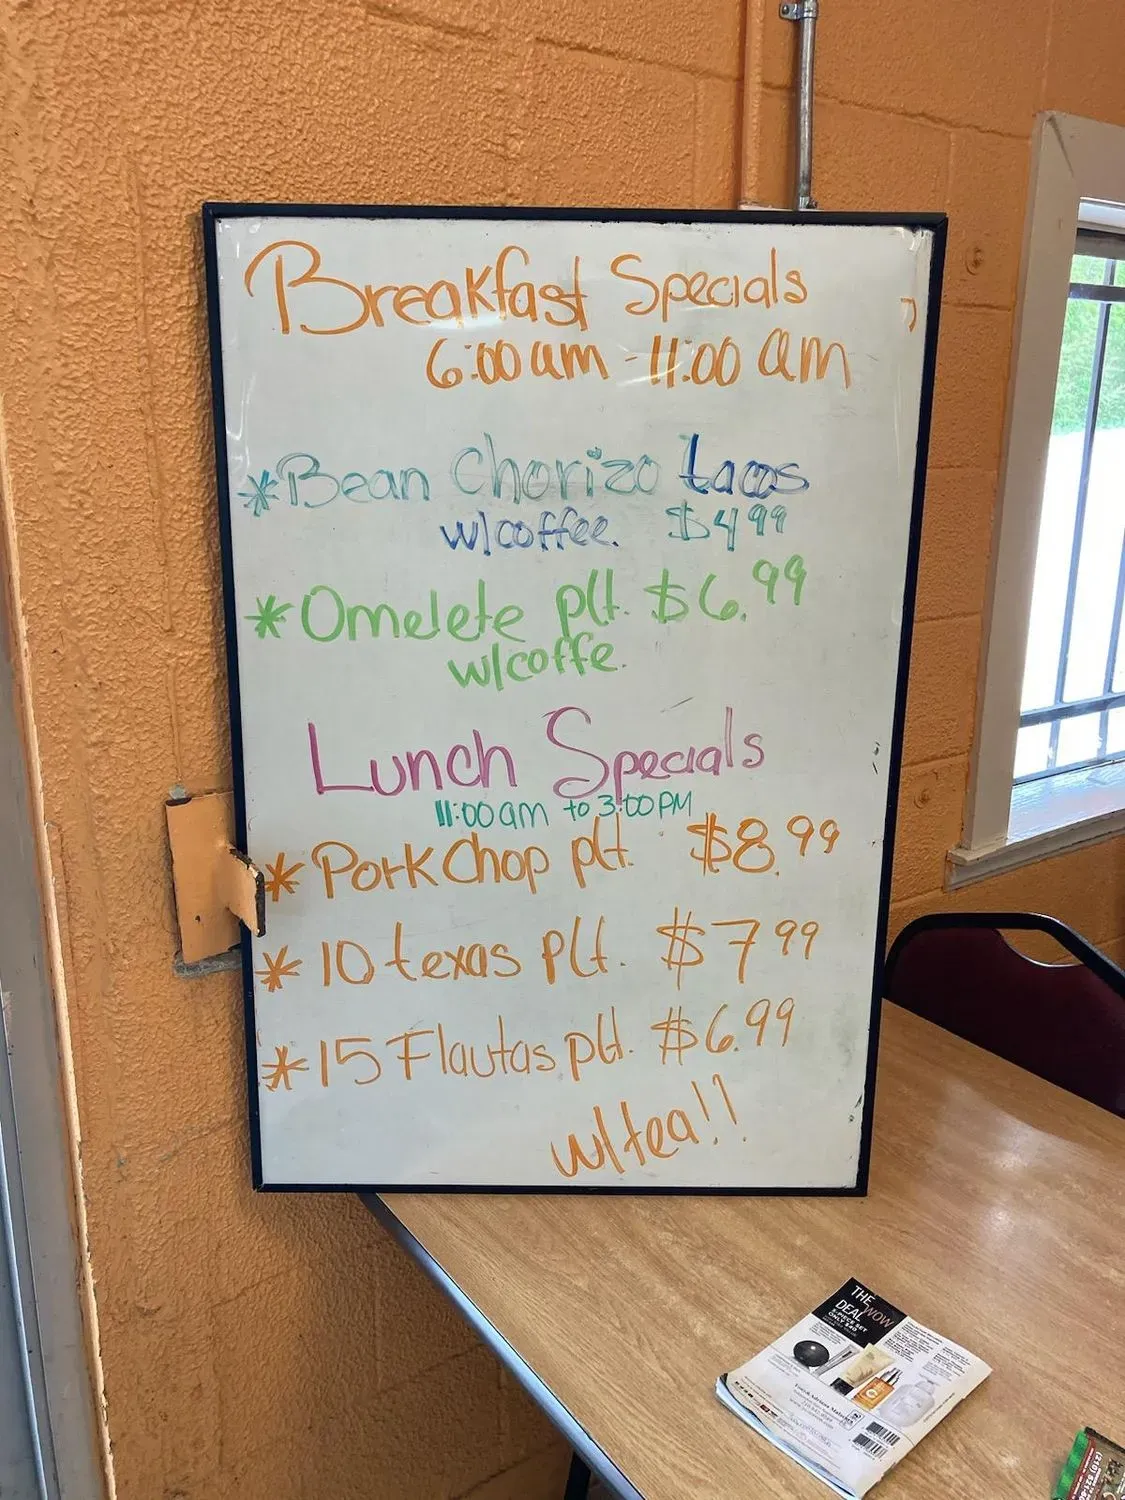 Breakfast Specials
6:00 am - 11:00 am
*Bean Chorizo tacos
w/coffee. $4.99
*Omelete plt. $6.99
w/coffe.
Lunch Specials
11:00 am to 3:00 PM
*Pork Chop plt. $8.99
*10 texas plt. $7.99
*15 Flautas plt. $6.99
w/tea!!
THE WOW
DEAL
5-PIECE SET
ONLY $40